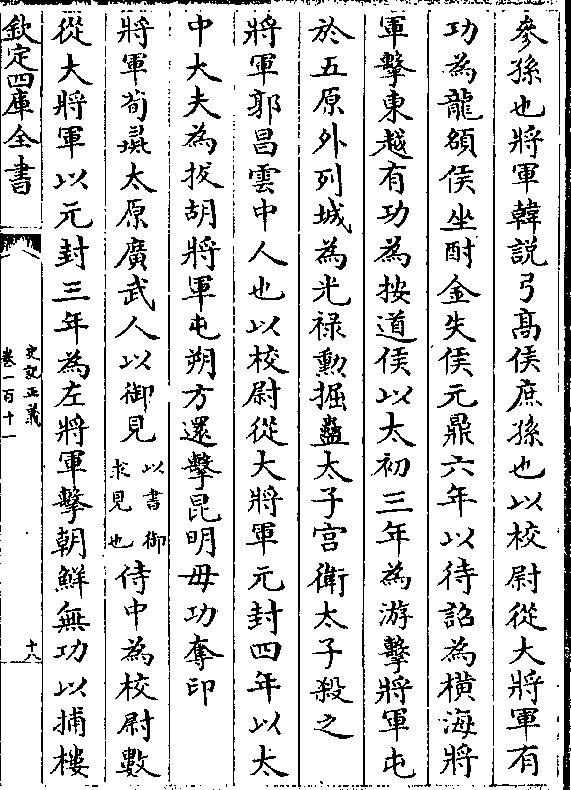 參孫也將軍韓説弓髙侯庶孫也以校尉從大將軍有
功為龍頟侯坐酎金失侯元鼎六年以待詔為横海將
軍擊東越有功為按道侯以太初三年為游擊將軍屯
於五原外列城為光禄勲掘蠱太子宫衛太子殺之
將軍郭昌雲中人也以校尉從大將軍元封四年以太
中大夫為拔胡將軍屯朔方還擊昆明毋功奪印
將軍荀彘太原廣武人以御見以書御求見也侍中為校尉數
從大將軍以元封三年為左將軍擊朝鮮無功以捕樓
欽定四庫全書
史記正義
卷一百十一
十八